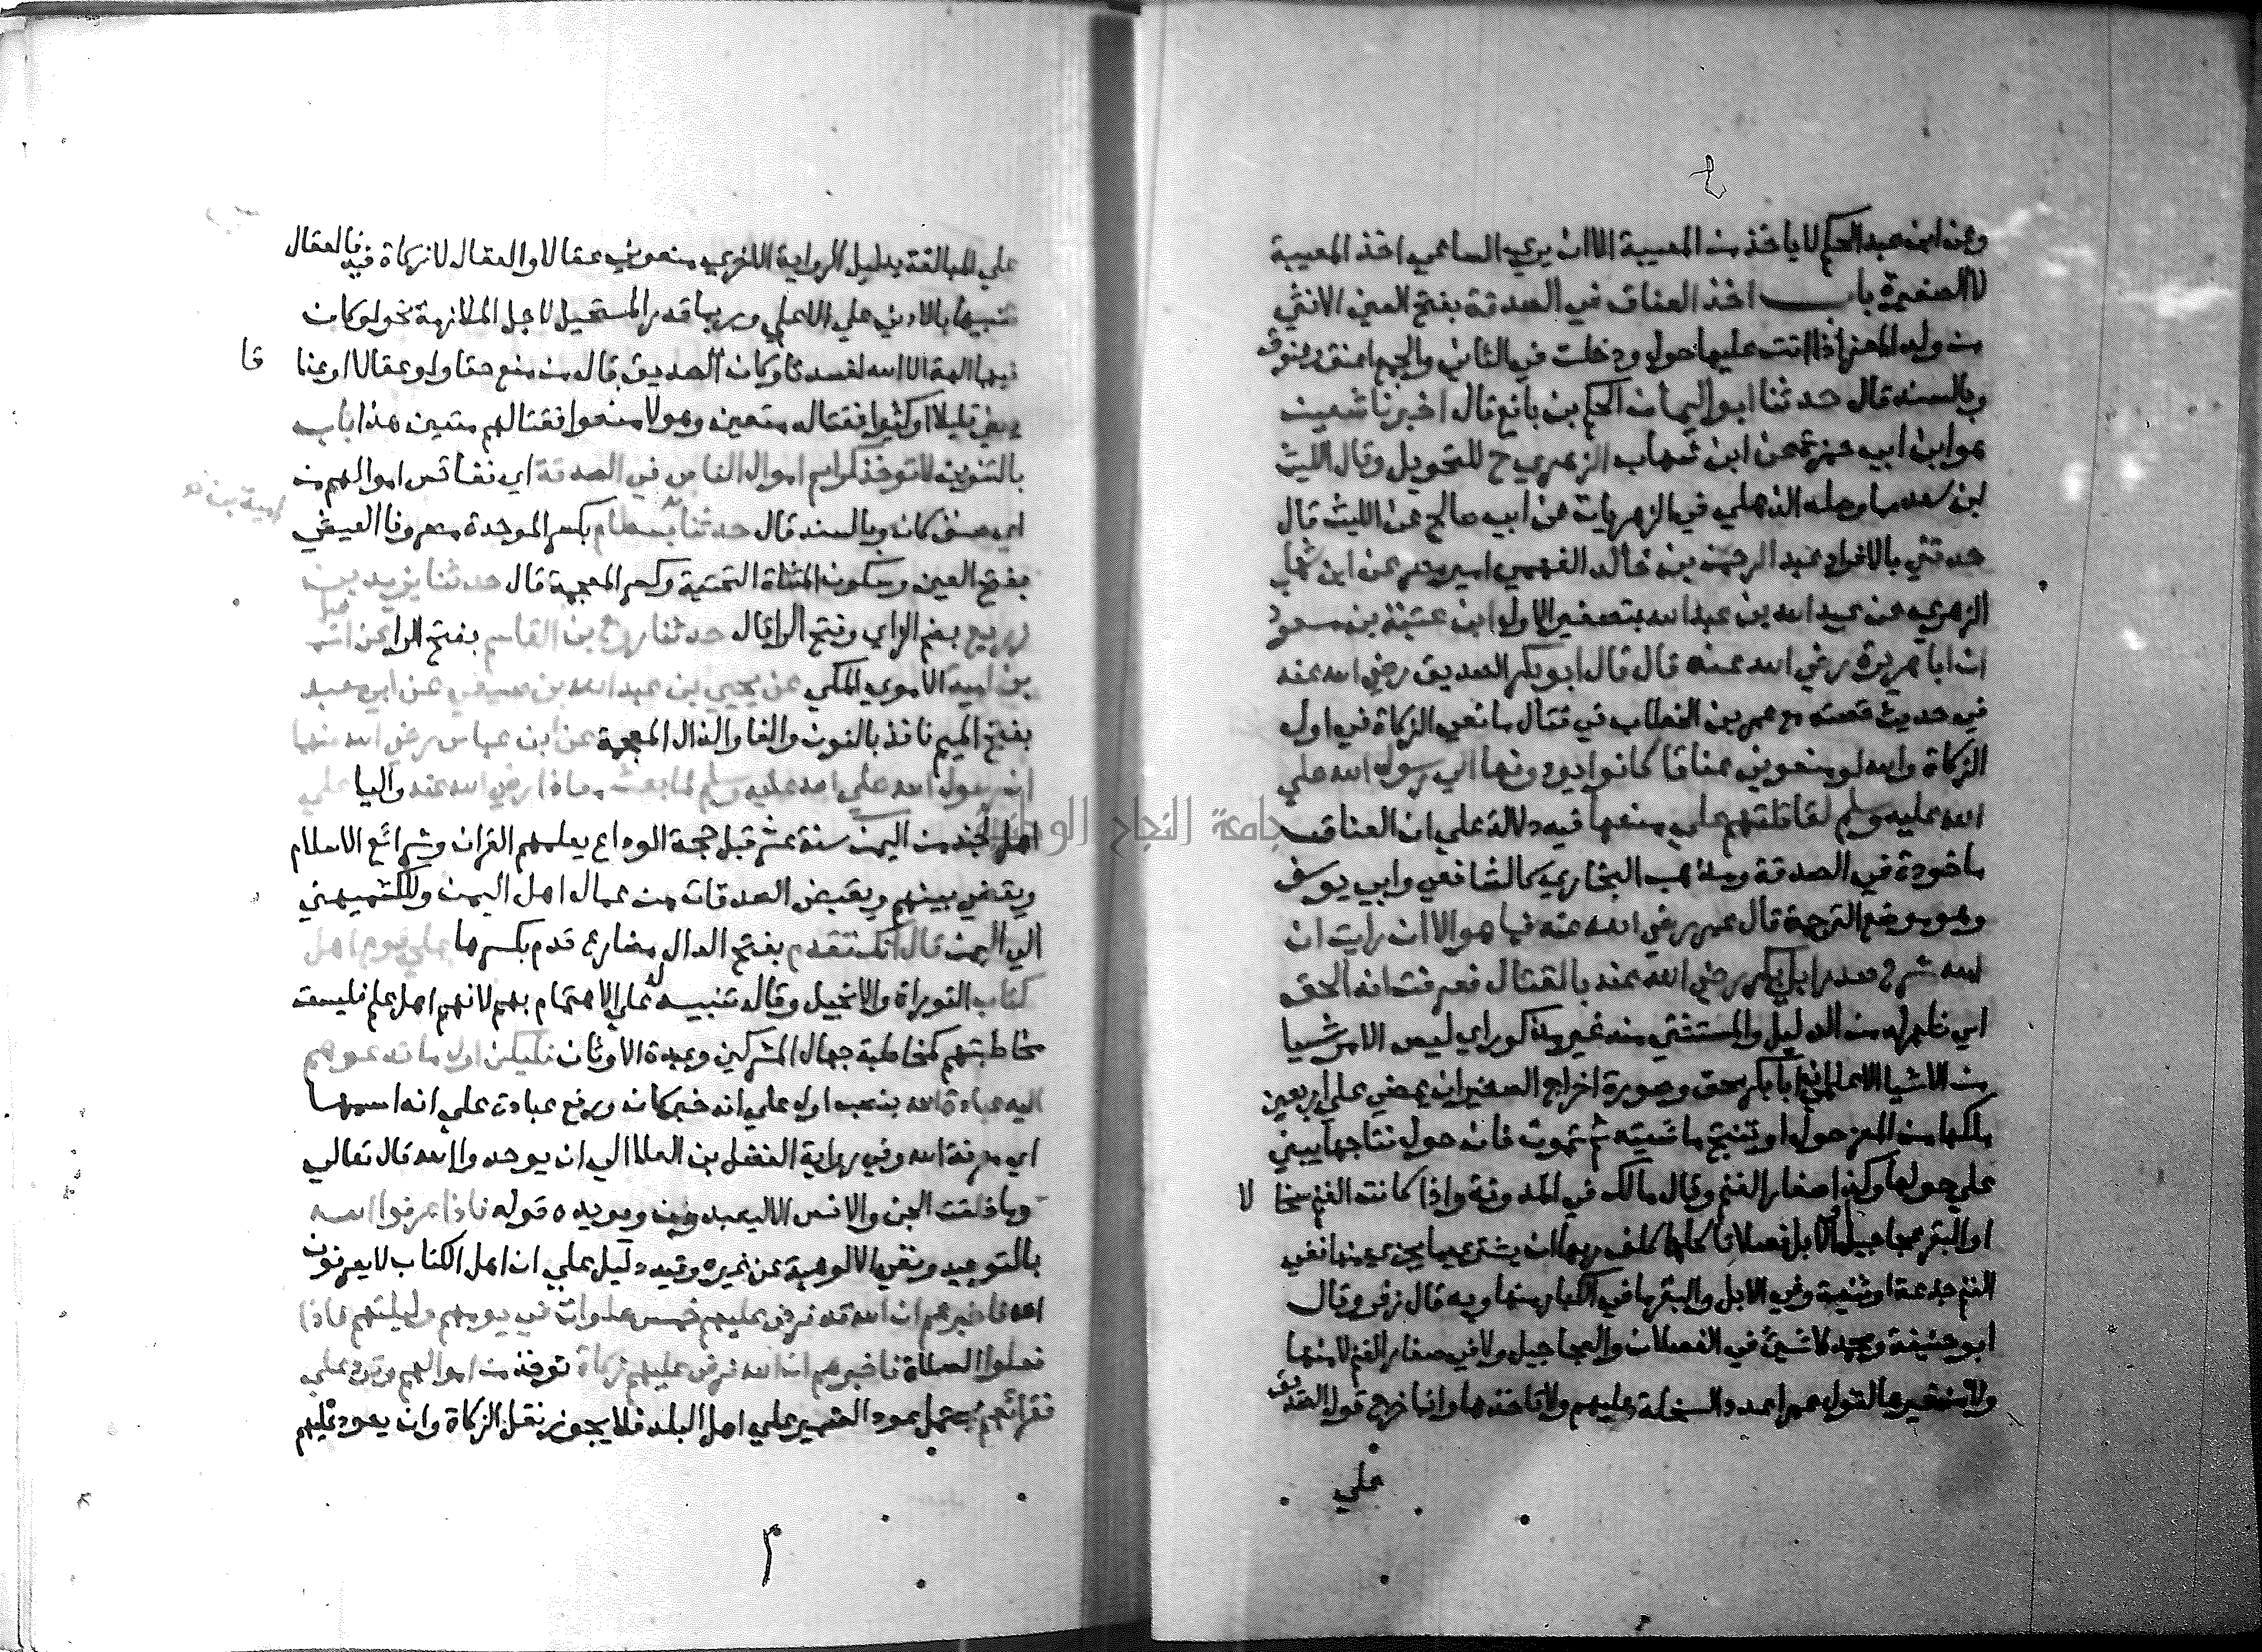 ٤
وعن ابن عبد الحكم لا ياخذ من المعيبة الا ان يري الساعي اخذ المعيبة
لا الصغيرة باب اخذ العناق في الصدقة بفتح العين الانثي
من ولد المعز اذا اتت عليها حول ودخلت في الثاني والجمع اعنق وعنوق
وبالسند قال حدثنا ابو اليمان الحكم بن نافع قال اخبرنا شعيب
هو ابن ابي حمزة عن ابن شهاب الزهري ح للتحويل وقال الليث
بن سعد مما وصله الذهلي في الزهريات عن ابي صالح عن الليث قال
حدثني بالافراد عبد الرحمن بن خالد الفهمي امير مصر عن ابن شهاب
الزهري عن عبيد الله بن عبد الله بتصغير الاول ابن عتبة بن مسعود
ان ابا هريرة رضي الله عنه قال قال ابو بكر الصديق رضي الله عنه
في حديث قصته مع عمر بن الخطاب في قتال مانعي الزكاة في اول
الزكاة والله لو منعوني عناقا كانوا يودونها الي رسول الله صلي
الله عليه وسلم لقاتلتهم علي منعها فيه دلالة علي ان العناق
ماخوذة في الصدقة ومذهب البخاري كالشافعي وابي يوسف
وهو موضع الترجمة قال عمر رضي الله عنه فما هو الا ان رايت ان
الله شرح صدر ابي بكر رضي الله عنه بالقتال فعرفت انه الحق
اي ظهر له من الدليل والمستثني منه غير مذكور اي ليس الامر شيا
من الاشيا الا علمي ان ابا بكر محق وصورة اخراج الصغير ان يمضي علي اربعين
ملكها من المعز حول او تنتج ماشيته ثم تموت فان حول نتاجها يبني
علي حولها وكذا صغار الغنم وقال مالك في المدونة واذا كانت الغنم سخالا
او البقر عجاجيل او الابل فصلانا كلها كلف ربها ان يشتري ما يجزي منها ففي
الغنم جذعة او ثنية وفي الابل والبقر ما في الكبار منها وبه قال زفر وقال
ابو حنيفة ومحمد لا شيء في الفصلان والعجاجيل ولا في صغار الغنم لا منها
ولا من غيرها لقول عمر اعدد السخلة عليهم ولا تاخذها وانما خرج قول الصديق
علي
علي المبالغة بدليل الرواية الاخري منعوني عقالا والعقال لا زكاة فيه فالعقال
تنبيها بالادني علي الاعلي وربما قدر المستحيل لاجل الملازمة نحو لو كان
فيهما الهة الا الله لفسدتا وكان الصديق قال من منع حقا ولو عقالا او عناقا
يعني قليلا او كثيرا فقتاله متعين وهولا منعوا فقتالهم متعين هذا باب
بالتنوين لا توخذ كرايم اموال الناس في الصدقة اي نفائس اموالهم من
اي صنف كان وبالسند قال حدثنا بسطام بكسر الموحدة مصروفا العيشي
بفتح العين وسكون المثناة التحتية وكسر المعجمة قال حدثنا يزيد بن
زريع بضم الزاي وفتح الرا قال حدثنا روح بن القاسم بفتح الرا عن اسماعيل
بن امية الاموي المكي عن يحيي بن عبد الله بن صيفي عن ابي معبد
بفتح الميم نافذ بالنون والفا والذال المعجمة عن ابن عباس رضي الله عنهما
ان رسول الله صلي الله عليه وسلم لما بعث معاذا رضي الله عنه واليا علي
اهل الجند من اليمن سنة عشر قبل حجة الوداع يعلمهم القران وشرائع الاسلام
ويقضي بينهم ويقبض الصدقات من عمال اهل اليمن وللكشميهني
الي اليمن قال انك تقدم بفتح الدال مضارع قدم بكسرها علي قوم اهل
كتاب التوراة والانجيل وقاله تنبيها له علي الاهتمام بهم لانهم اهل علم فليست
مخاطبتهم كمخاطبة جهال المشركين وعبدة الاوثان فليكن اول ما تدعوهم
اليه عبادة الله بنصب اول علي انه خبر كان ورفع عبادة علي انه اسمها
اي معرفة الله وفي رواية الفضل بن العلا الي ان يوحدوا الله قال تعالي
وما خلقت الجن والانس الا ليعبدون ويويده قوله فاذا عرفوا الله
بالتوحيد ونفي الالوهية عن غيره وفيه دليل علي ان اهل الكتاب لا يعرفون
الله فاخبرهم ان الله قد فرض عليهم خمس صلوات في يومهم وليلتهم فاذا
فعلوا الصلاة فاخبرهم ان الله فرض عليهم زكاة توخذ من اموالهم وترد علي
فقرائهم يحتمل عود الضمير علي اهل البلد فلا يجوز نقل الزكاة وان يعود عليهم
جامعة النجاح الوطنية